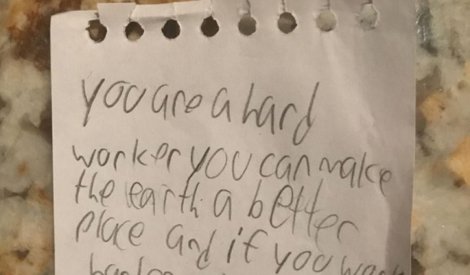 you are a hard
worker you can make
the earth a better
place and if you want